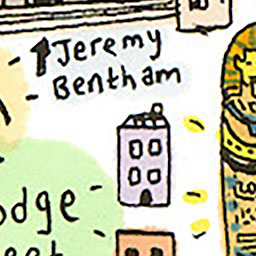 Jeremy
Bentham
odge
eet